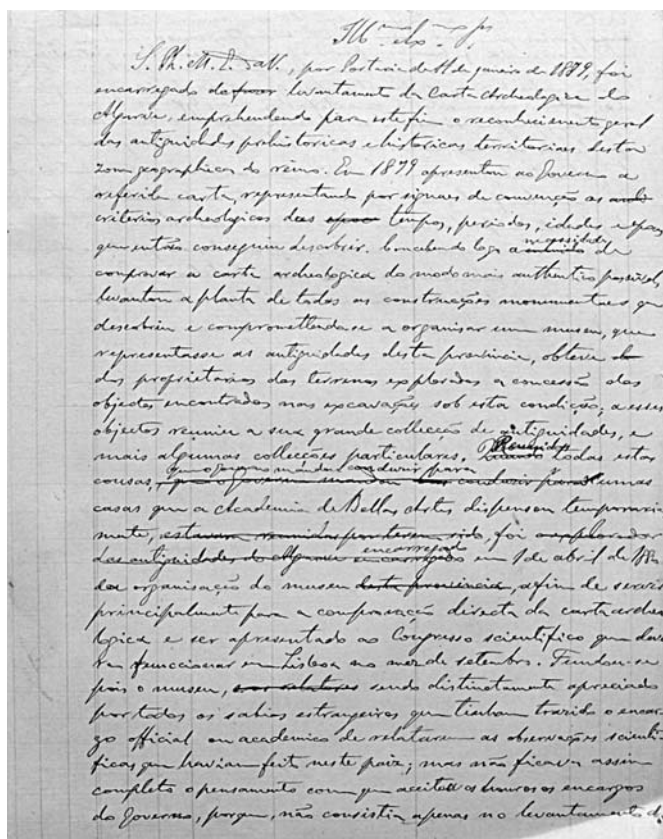 Ill.mo Ex.mo Sr.
S. Ph. M. E. da V., por Portaria de 11 de janeiro de 1879, foi
encarregado do levantamento da Carta Archeologica do
Algarve, emprehendendo para este fim o reconhecimento geral
das antiguidades prehistoricas e historicas territoriaes desta
zona geographica do reino. Em 1879 apresentou ao Governo a
referida carta, representando por signaes de convenção os
criterios archeologicos dos tempos, periodos, idades e epocas
que então conseguiu descobrir. Concebendo logo a necessidade de
comprovar a carta archeologica do modo mais authentico possivel,
levantou a planta de todas as construcções monumentaes que
descobriu e compromettendo-se a organisar um museu, que
representasse as antiguidades desta provincia, obteve
dos proprietarios dos terrenos explorados a concessão dos
objectos encontrados nas excavações sob esta condição; a esses
objectos reuniu a sua grande collecção de antiguidades, e
mais algumas collecções particulares. Reunidas todas estas
cousas, que o Governo mandou conduzir para umas
casas que a Academia de Bellas Artes dispensou temporaria
mente, foi o explorador
das antiguidades do Algarve encarregado em 1 de abril de
da organisação do museu desta provincia, afim de servir
principalmente para a comprovação directa da carta archeo
logica e ser apresentado ao Congresso scientifico que deve
ra funccionar em Lisboa no mez de setembro. Fundou-se
pois o museu, sendo distinctamente apreciado
por todos os sabios estrangeiros que tinham trazido o encar
go official ou academico de relatarem as observações scienti
ficas que haviam feito neste paiz; mas não ficava assim
completo o pensamento com que aceitou os honrosos encargos
do Governo, porque, não consistia apenas no levantamento da